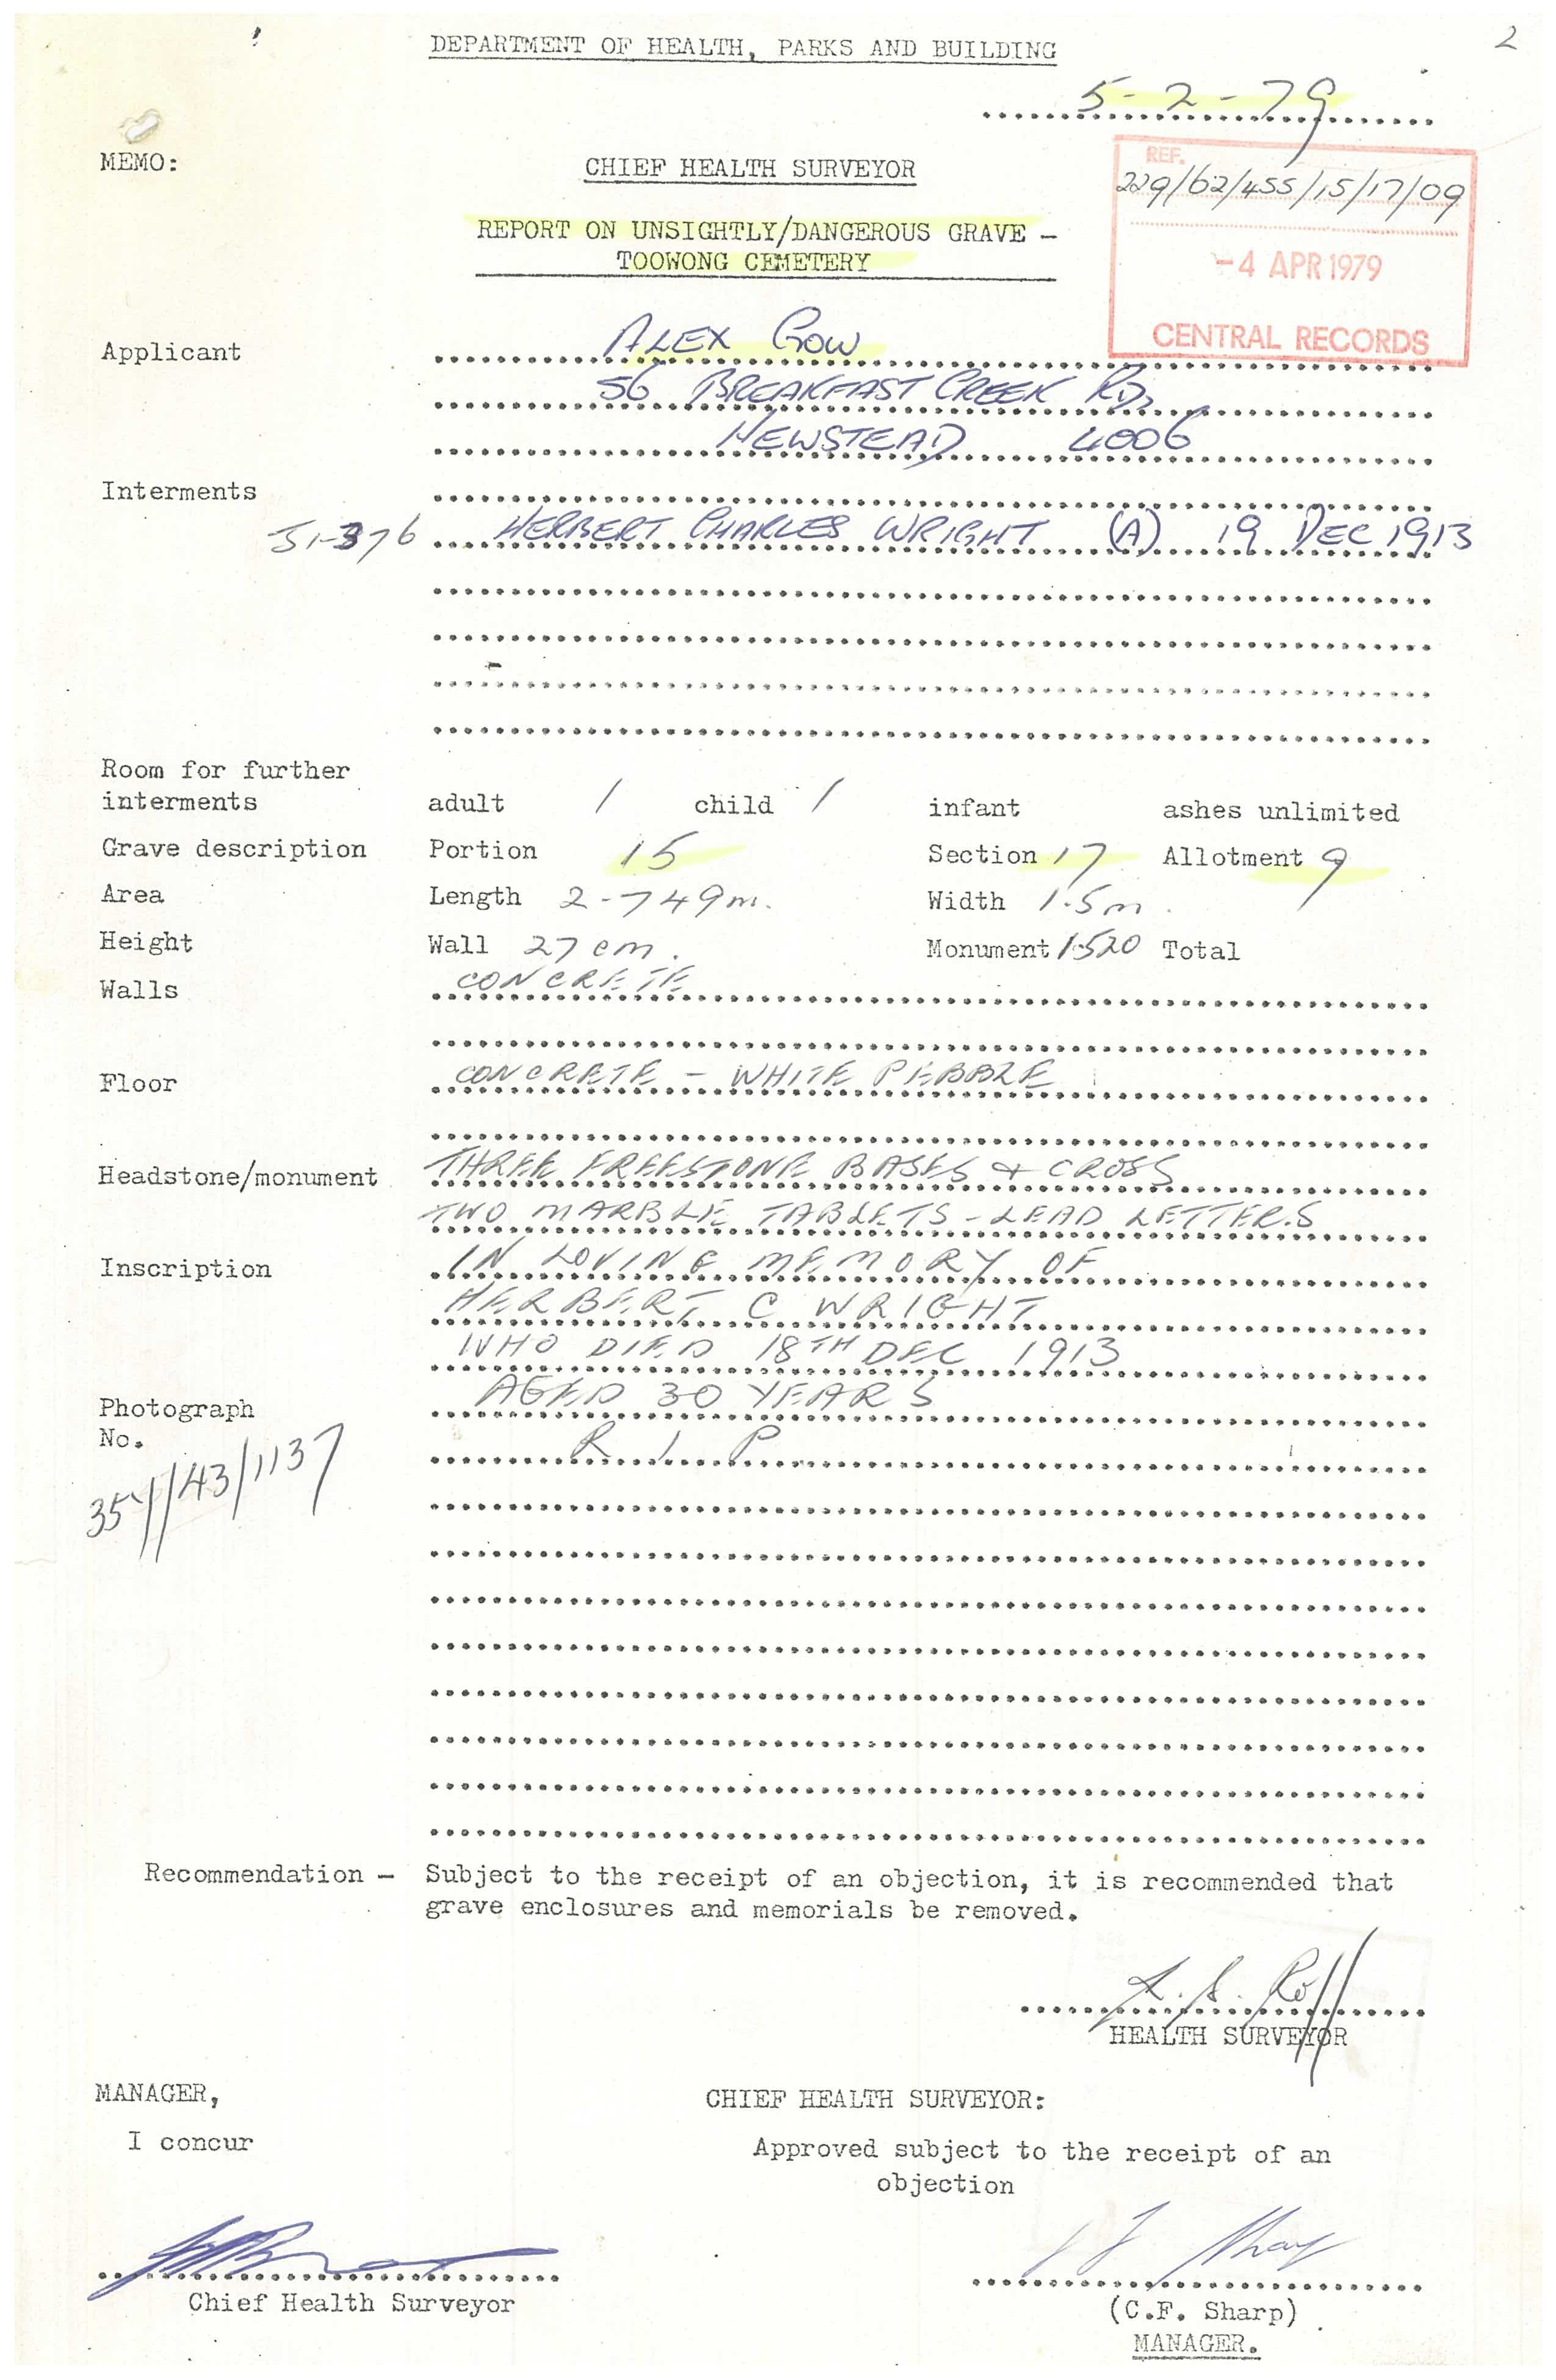 2
DEPARTMENT OF HEALTH, PARKS AND BUILDING
5-2-79
MEMO:
CHIEF HEALTH SURVEYOR
REF.
229/62/455/15/17/09
REPORT ON UNSIGHTLY/DANGEROUS GRAVE -
TOOWONG CEMETERY
-4 APR 1979
CENTRAL RECORDS
Applicant ALEX GOW
56 BREAKFAST CREEK RD,
NEWSTEAD 4006
Interments
HERBERT CHARLES WRIGHT (A) 19 DEC 1913
Room for further
interments adult / child / infant ashes unlimited
Grave description Portion 15 Section 17 Allotment 9
Area Length 2-749m. Width 1.5m.
Height Wall 27cm. Monument 1.520 Total
Walls CONCRETE
Floor CONCRETE - WHITE PEBBLE
Headstone/monument THREE FREESTONE BASES & CROSS
TWO MARBLE TABLETS - LEAD LETTERS
Inscription IN LOVING MEMORY OF
HERBERT C WRIGHT
WHO DIED 18TH DEC 1913
AGED 30 YEARS
Photograph
No.
R I P
Recommendation - Subject to the receipt of an objection, it is recommended that
grave enclosures and memorials be removed.
HEALTH SURVEYOR
MANAGER,
CHIEF HEALTH SURVEYOR:
I concur
Approved subject to the receipt of an
objection
Chief Health Surveyor
(C.F. Sharp)
MANAGER.